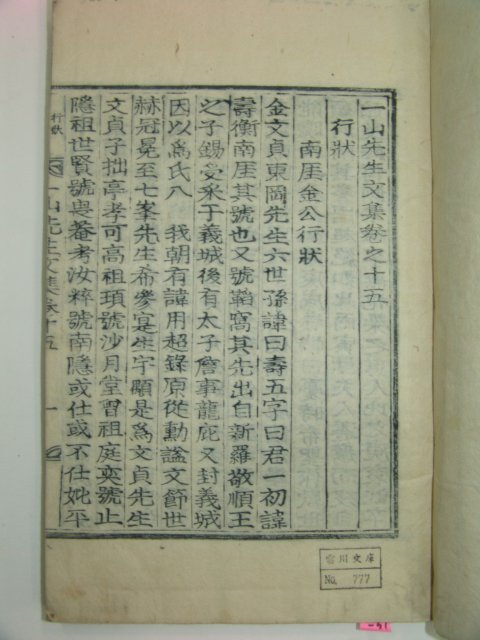 一山先生文集卷之十五
行狀
南厓金公行狀
金文貞東岡先生六世孫諱曰壽五字曰君一初諱
壽衡南厓其號也又號韜窩其先出自新羅敬順王
之子錫受采于義城後有太子詹事龍庇又封義城
因以爲氏入 我朝有諱用超錄原從勳諡文節世
赫冠冕至七峯先生希參寔生宇顒是爲文貞先生
文貞子拙亭孝可高祖頊號沙月堂曾祖庭奭號止
隱祖世賢號與菴考汝粹號南隱或仕或不仕妣平
行狀
一山先生文集卷十五
一
雲川文庫
No. 777